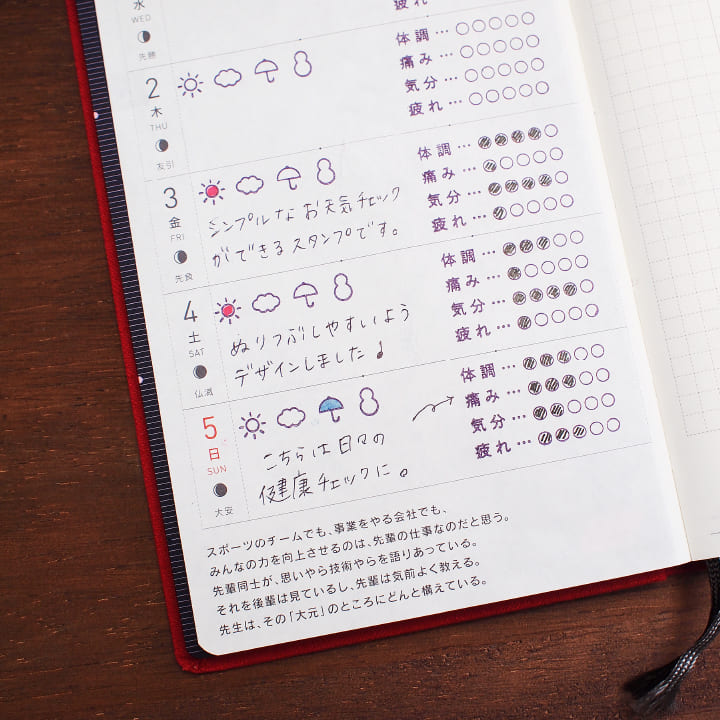 水
WED
先勝
疲れ
2
木
THU
友引
体調…○○○○○
痛み…○○○○○
気分…○○○○○
疲れ…○○○○○
3
金
FRI
先負
シンプルなお天気チェック
ができるスタンプです。
体調…●●●●○
痛み…●○○○○
気分…●●●●○
疲れ…●○○○○
4
土
SAT
仏滅
ぬりつぶしやすいよう
デザインしました♪
体調…●●●○○
痛み…●○○○○
気分…●●●●○
疲れ…●○○○○
5
日
SUN
大安
こちらは日々の
健康チェックに。
体調…●●●○○
痛み…●●●○○
気分…●●○○○
疲れ…●●●○○
スポーツのチームでも、事業をやる会社でも、
みんなの力を向上させるのは、先輩の仕事なのだと思う。
先輩同士が、思いやら技術やらを語りあっている。
それを後輩は見ているし、先輩は気前よく教える。
先生は、その「大元」のところにどんと構えている。